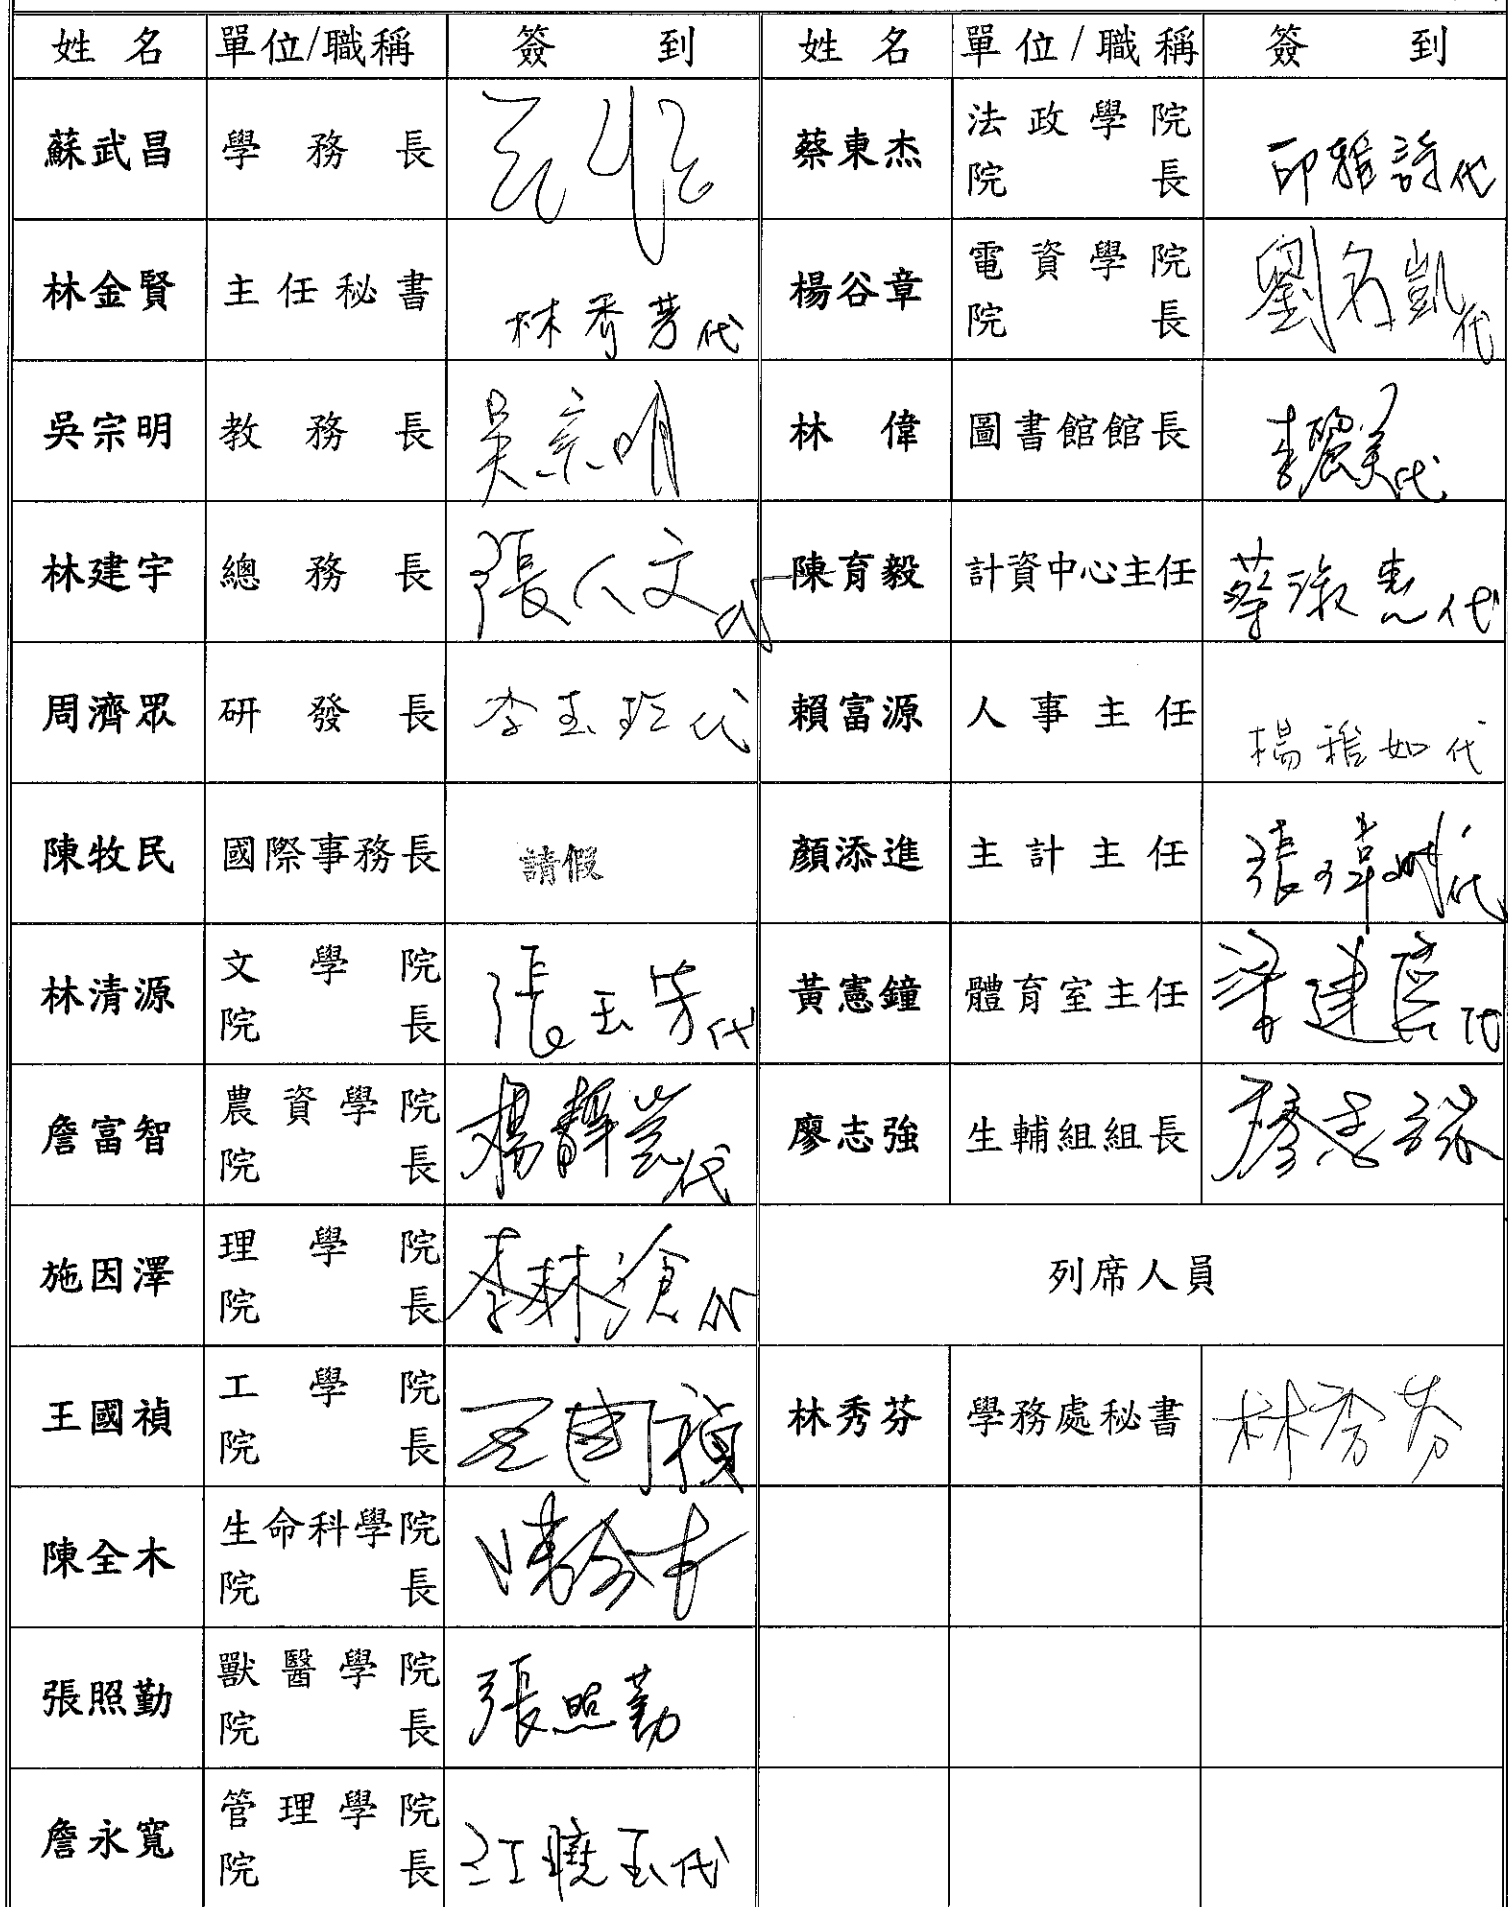 姓名 單位/職稱 簽到 姓名 單位/職稱 簽到
蘇武昌 學務長 蔡東杰 法政學院院長 邱雅詩代
林金賢 主任秘書 林秀芳代 楊谷章 電資學院院長 劉名凱代
吳宗明 教務長 吳宗明 林偉 圖書館館長 李麗美代
林建宇 總務長 張人文代 陳育毅 計資中心主任 蔡淑惠代
周濟眾 研發長 李玉玲代 賴富源 人事主任 楊雅如代
陳牧民 國際事務長 請假 顏添進 主計主任 張瑋代
林清源 文學院院長 張玉芳代 黃憲鐘 體育室主任 建代
詹富智 農資學院院長 楊靜瑩代 廖志強 生輔組組長 廖志強
施因澤 理學院院長 李林滄代 列席人員
王國禎 工學院院長 王國禎 林秀芬 學務處秘書 林秀芬
陳全木 生命科學院院長 陳全木
張照勤 獸醫學院院長 張照勤
詹永寬 管理學院院長 江曉玉代